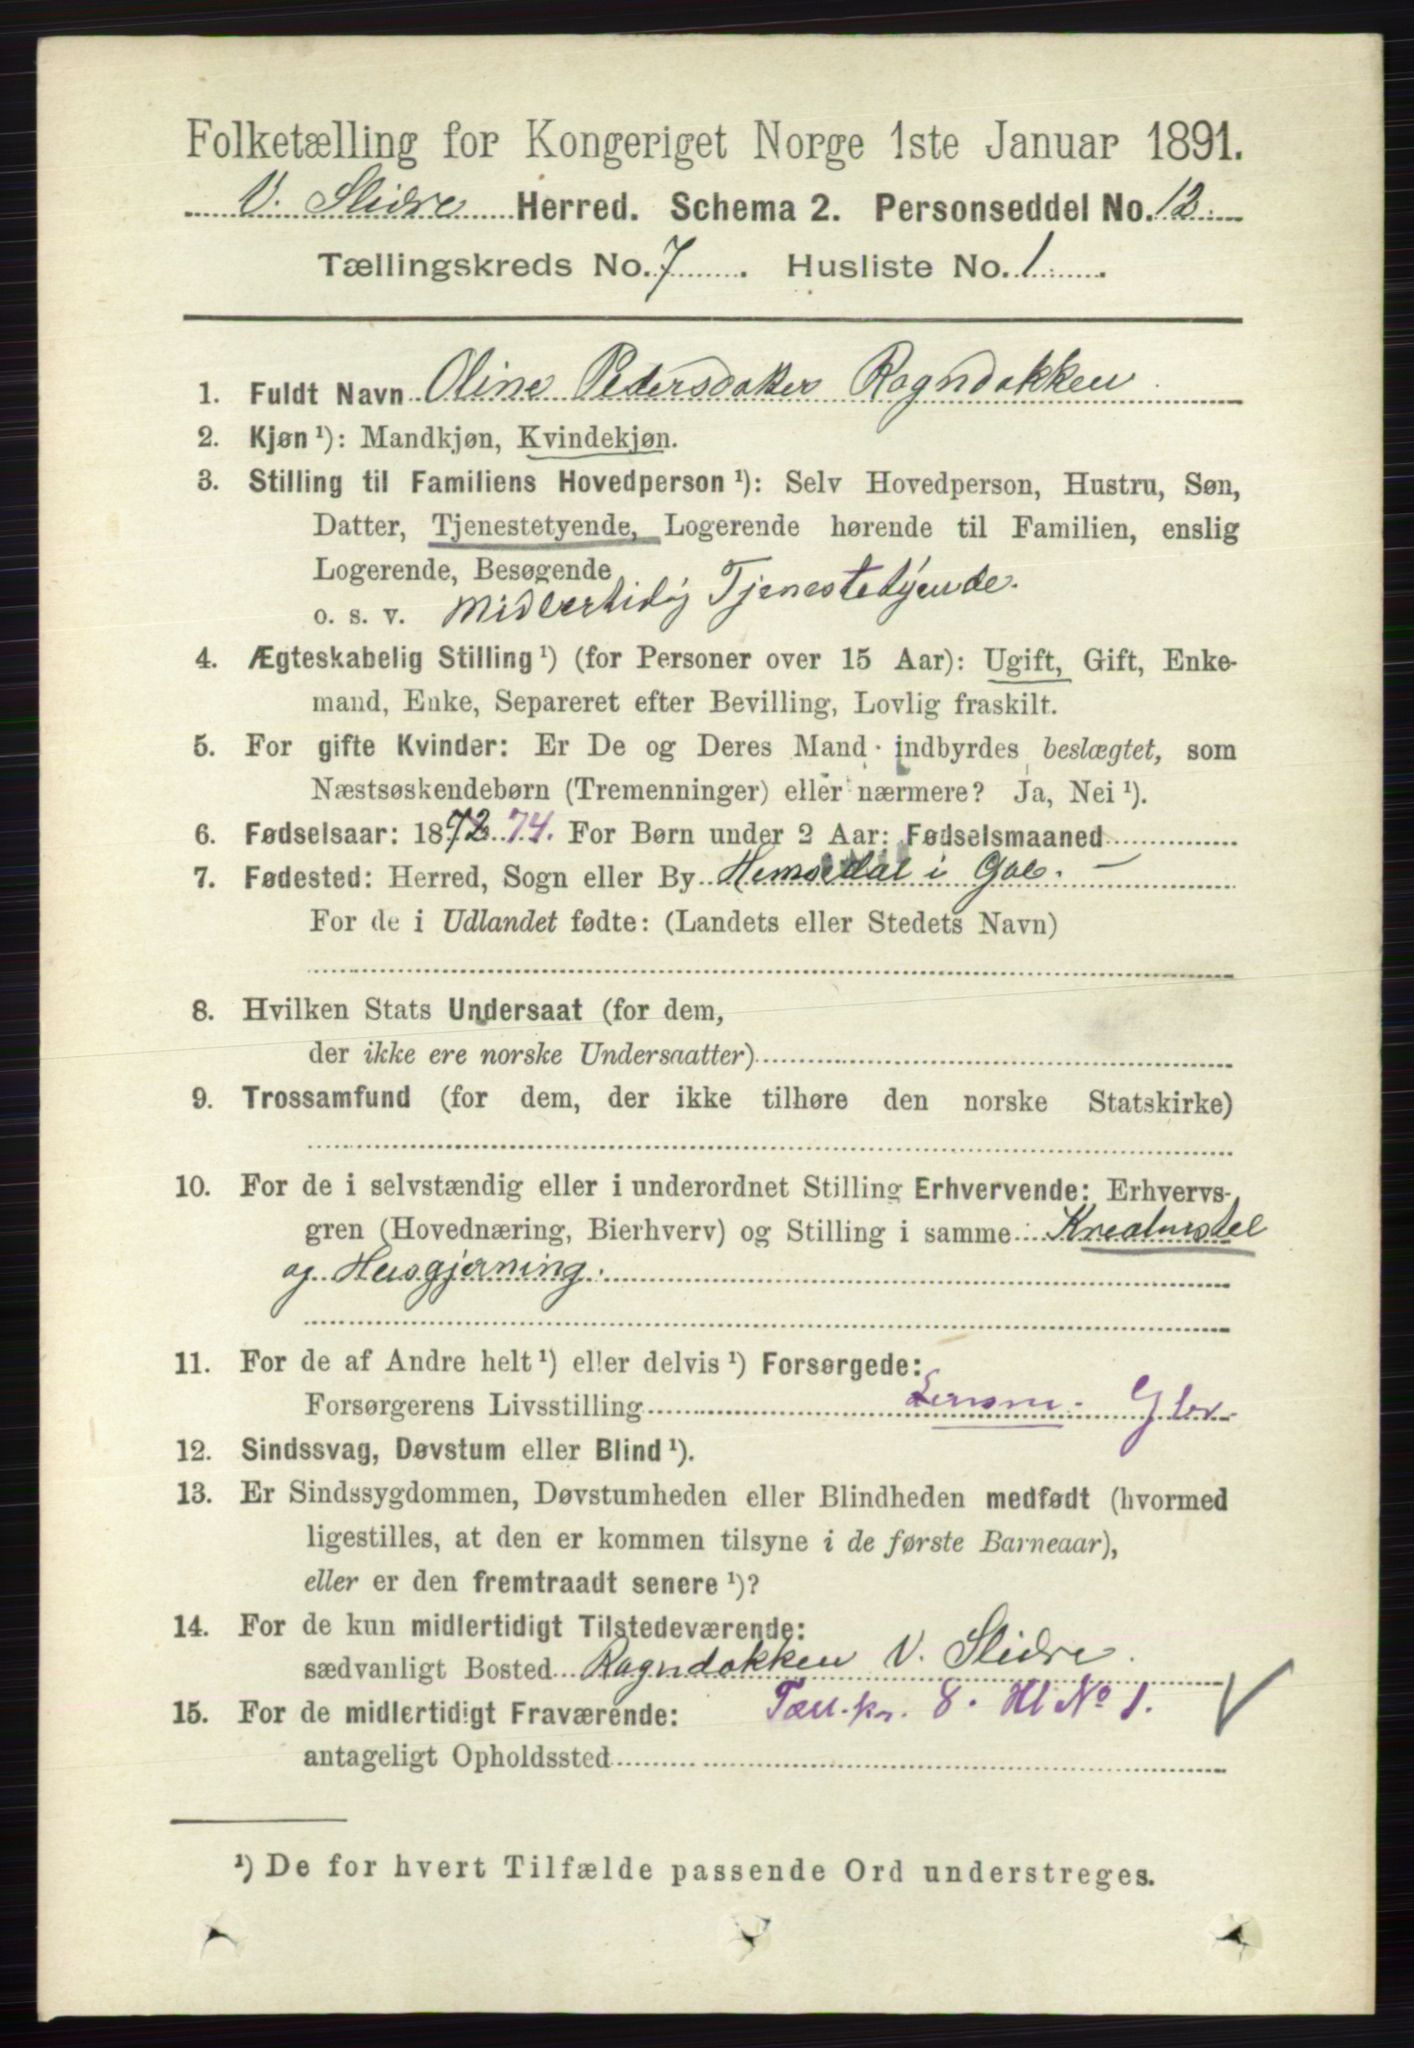 Folketælling for Kongeriget Norge 1ste Januar 1891.
V. Slidre Herred. Schema 2. Personseddel No. 12.
Tællingskreds No. 7. Husliste No. 1.
1. Fuldt Navn Oline Pedersdatter Rogndokken
2. Kjøn ¹): Mandkjøn, Kvindekjøn.
3. Stilling til Familiens Hovedperson ¹): Selv Hovedperson, Hustru, Søn,
Datter, Tjenestetyende, Logerende hørende til Familien, enslig
Logerende, Besøgende
o. s. v. Midlertidig Tjenestetyende.
4. Ægteskabelig Stilling ¹) (for Personer over 15 Aar): Ugift, Gift, Enke-
mand, Enke, Separeret efter Bevilling, Lovlig fraskilt.
5. For gifte Kvinder: Er De og Deres Mand indbyrdes beslægtet, som
Næstsøskendebørn (Tremenninger) eller nærmere? Ja, Nei ¹).
6. Fødselsaar: 1872. 74. For Børn under 2 Aar: Fødselsmaaned
7. Fødested: Herred, Sogn eller By Hemsedal i Gol. —
For de i Udlandet fødte: (Landets eller Stedets Navn)
8. Hvilken Stats Undersaat (for dem,
der ikke ere norske Undersaatter)
9. Trossamfund (for dem, der ikke tilhøre den norske Statskirke)
10. For de i selvstændig eller i underordnet Stilling Erhvervende: Erhvervs-
gren (Hovednæring, Bierhverv) og Stilling i samme Kreaturstel
og Husgjerning.
11. For de af Andre helt ¹) eller delvis ¹) Forsørgede:
Forsørgerens Livsstilling
12. Sindssvag, Døvstum eller Blind ¹).
13. Er Sindssygdommen, Døvstumheden eller Blindheden medfødt (hvormed
ligestilles, at den er kommen tilsyne i de første Barneaar),
eller er den fremtraadt senere ¹)?
14. For de kun midlertidigt Tilstedeværende:
sædvanligt Bosted Rogndokken V. Slidre.
15. For de midlertidigt Fraværende: Tæll.kr. 8. Hl No 1.
antageligt Opholdssted
¹) De for hvert Tilfælde passende Ord understreges.